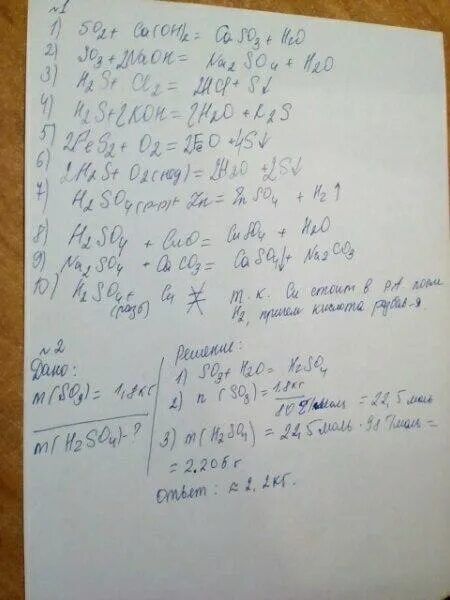 №1
1) SO2 + Ca(OH)2 = CaSO3 + H2O
2) SO3 + 2NaOH = Na2SO4 + H2O
3) H2S + Cl2 = 2HCl + S↓
4) H2S + 2KOH = 2H2O + K2S
5) 2FeS2 + O2 = 2FeO + 4S↓
6) 2H2S + O2(нед) = 2H2O + 2S↓
7) H2SO4(р-р) + Zn = ZnSO4 + H2↑
8) H2SO4 + CuO = CuSO4 + H2O
9) Na2SO4 + CaCO3 = CaSO4↓ + Na2CO3
10) H2SO4 + Cu ≠ т.к. Cu стоит в РА после
(разб) H2, причем кислота
№2
Дано:
m(SO3) = 1,8кг
m(H2SO4) - ?
Решение:
1) SO3 + H2O = H2SO4
2) n(SO3) = 1,8кг / 80 г/моль = 22,5 моль
3) m(H2SO4) = 22,5 моль · 98 г/моль =
= 2.205г
Ответ: ≈ 2,2кг.